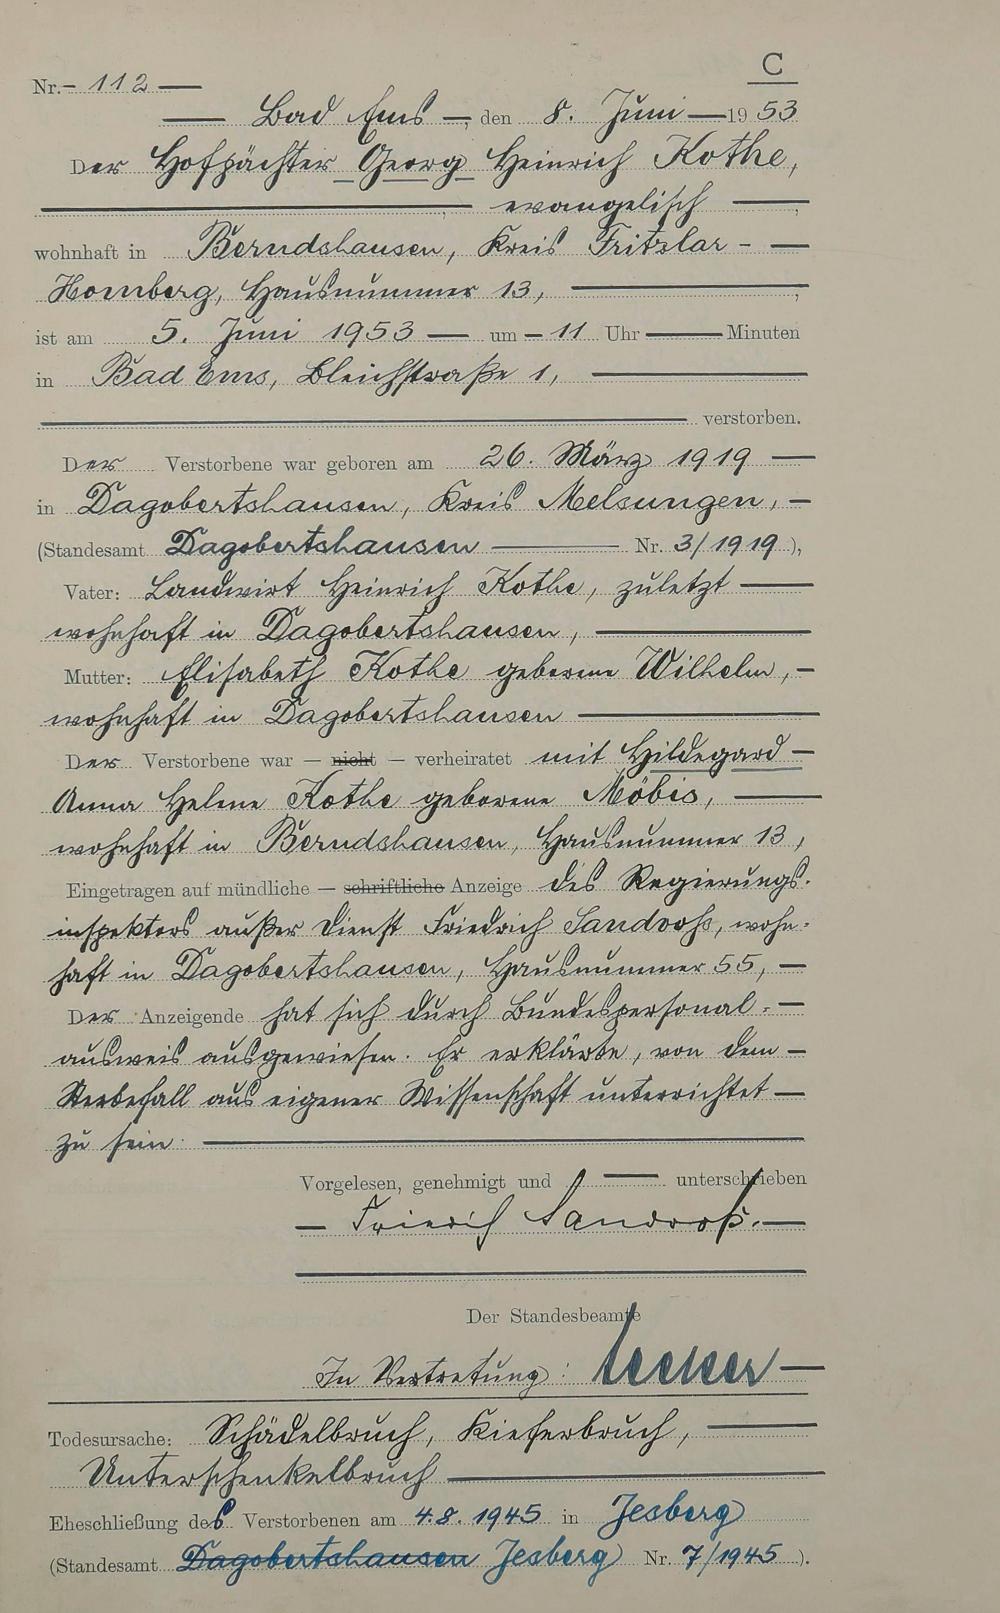 C
Nr. 112
Bad Ems, den 8. Juni 1953
Der Hofpächter Georg Heinrich Kothe,
evangelisch
wohnhaft in Berndshausen, Kreis Fritzlar-
Homberg, Hausnummer 13,
ist am 5. Juni 1953 um 11 Uhr Minuten
in Bad Ems, Bleichstraße 1,
verstorben.
Der Verstorbene war geboren am 26. März 1919
in Dagobertshausen, Kreis Melsungen,
(Standesamt Dagobertshausen Nr. 3/1919),
Vater: Landwirt Heinrich Kothe, zuletzt
wohnhaft in Dagobertshausen,
Mutter: Elisabeth Kothe geborene Wilhelm,
wohnhaft in Dagobertshausen
Der Verstorbene war — nicht — verheiratet mit Hildegard
Anna Helene Kothe geborene Möbis,
wohnhaft in Berndshausen, Hausnummer 13,
Eingetragen auf mündliche — schriftliche Anzeige des Regierungs-
inspektors außer Dienst Friedrich, wohn-
haft in Dagobertshausen, Hausnummer 55,
Der Anzeigende hat sich durch Bundespersonal-
ausweis ausgewiesen. Er erklärte, von dem
Sterbefall aus eigener Wissenschaft unterrichtet
zu sein.
Vorgelesen, genehmigt und unterschrieben
Der Standesbeamte
In Vertretung:
Todesursache: Schädelbruch, Kieferbruch,
Unterschenkelbruch
Eheschließung des Verstorbenen am 4.8.1945 in Jesberg
(Standesamt Dagobertshausen Jesberg Nr. 7/1945).